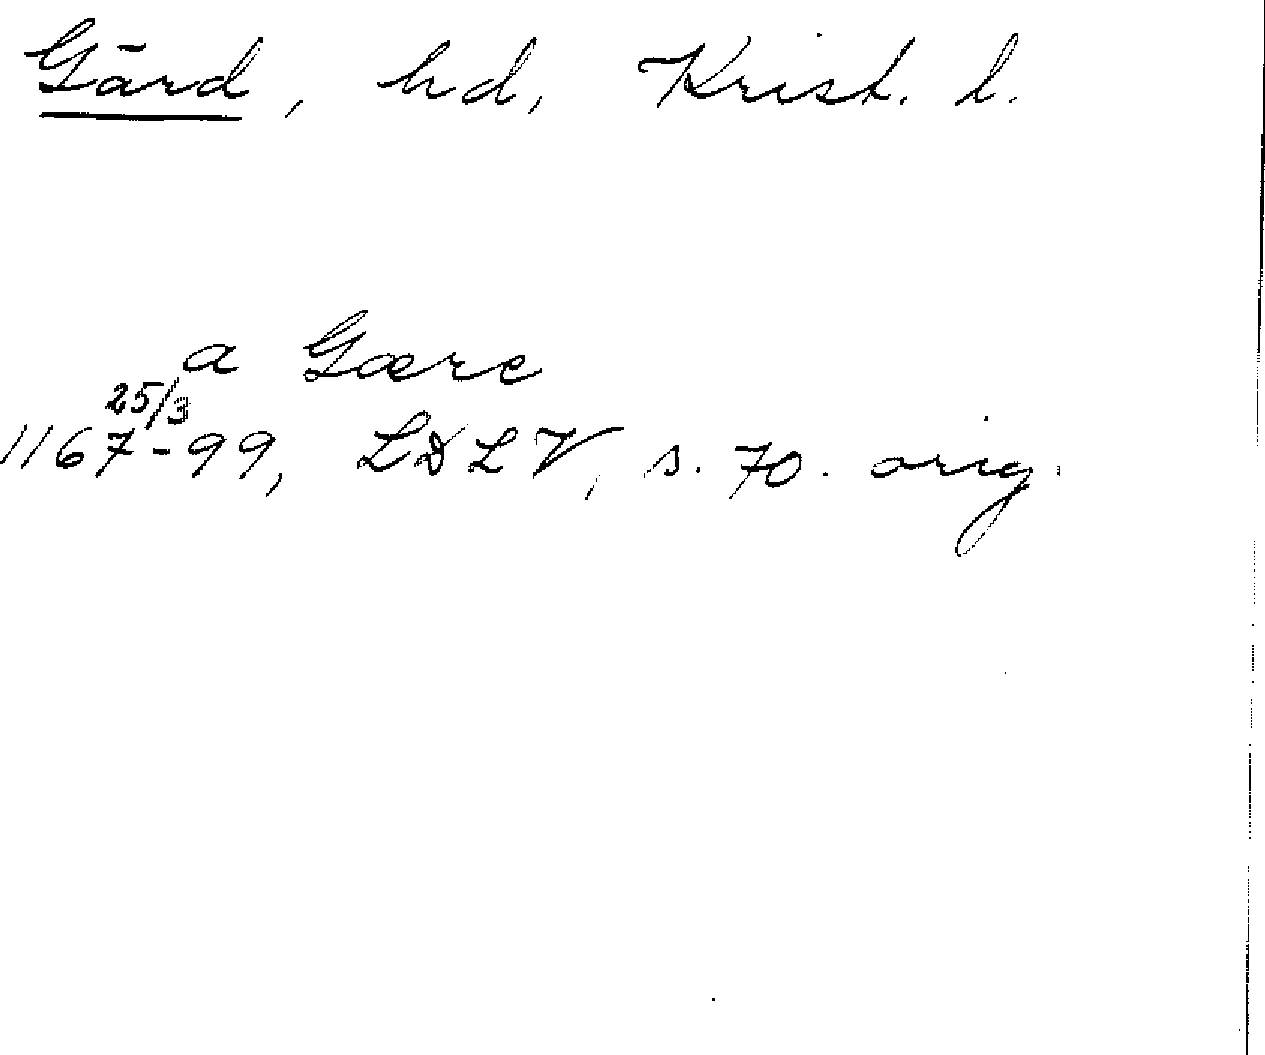 Gärd, hd, Krist. l.
a Gære
25/3
1167-99, LDLV, s. 70. orig.